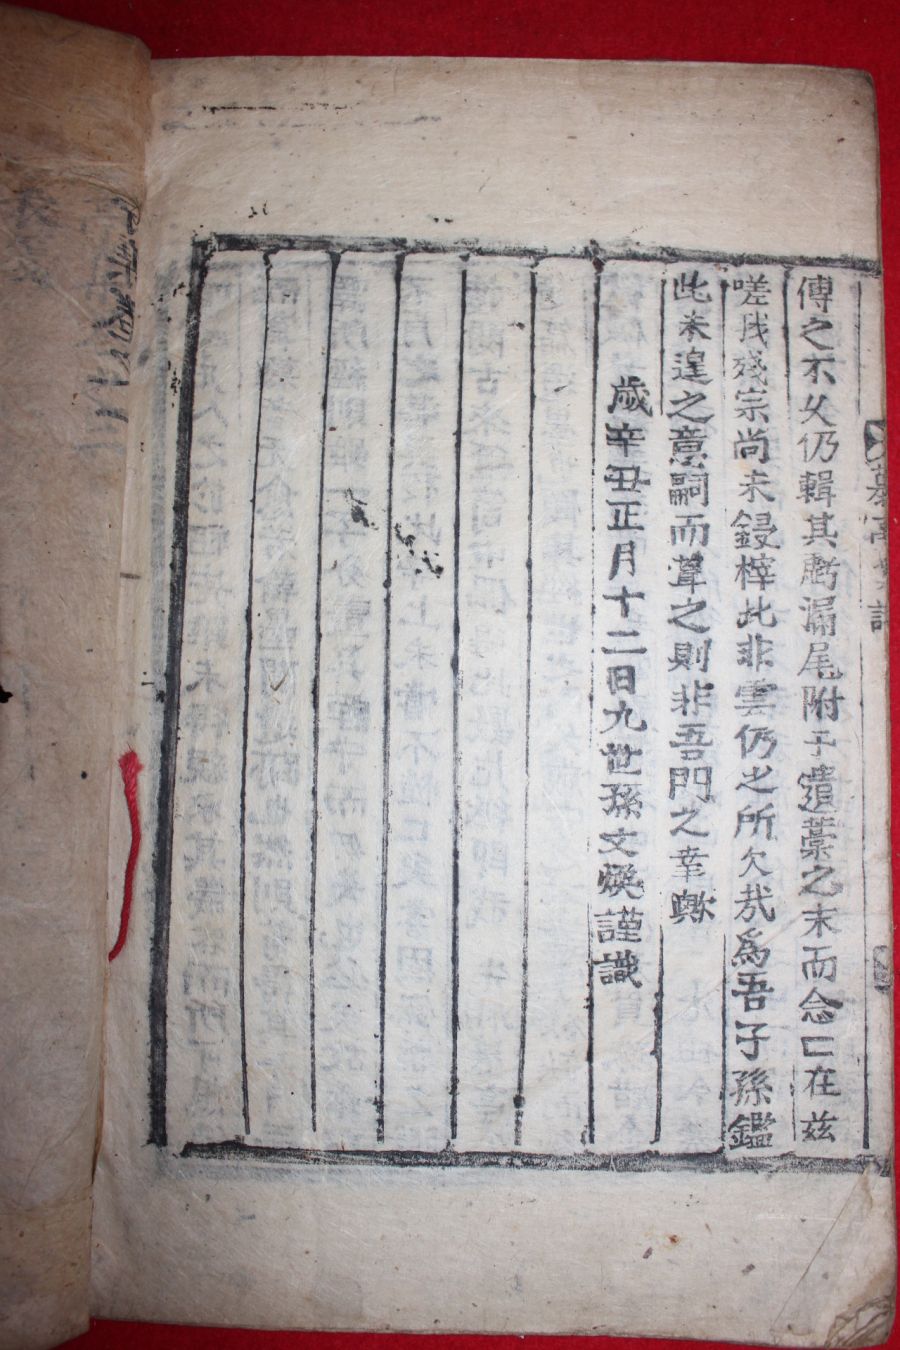 傳之不久仍輯其虧漏尾附于遺藁之末而念亡在玆
嗟我殘宗尚未鋟梓此非雲仍之所欠㢤爲吾子孫鑑
此未遑之意嗣而葺之則非吾門之幸歟
歲辛丑正月十二日九世孫文煥謹識